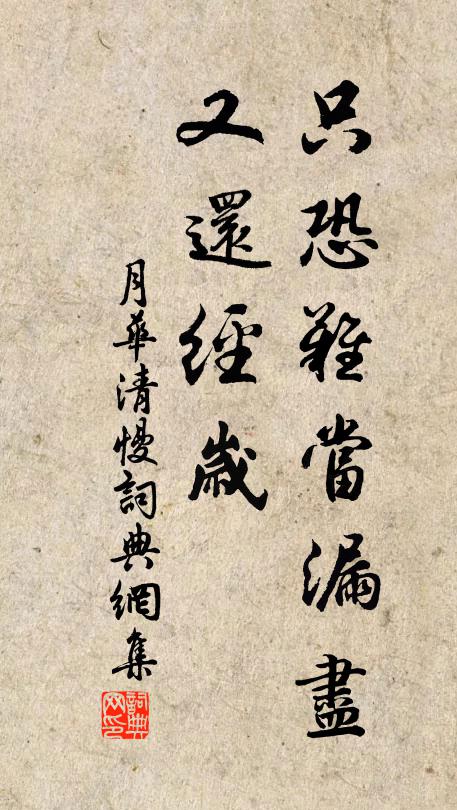 只恐難當漏盡
又還經歲
月華清慢詞典網集
詞典网印